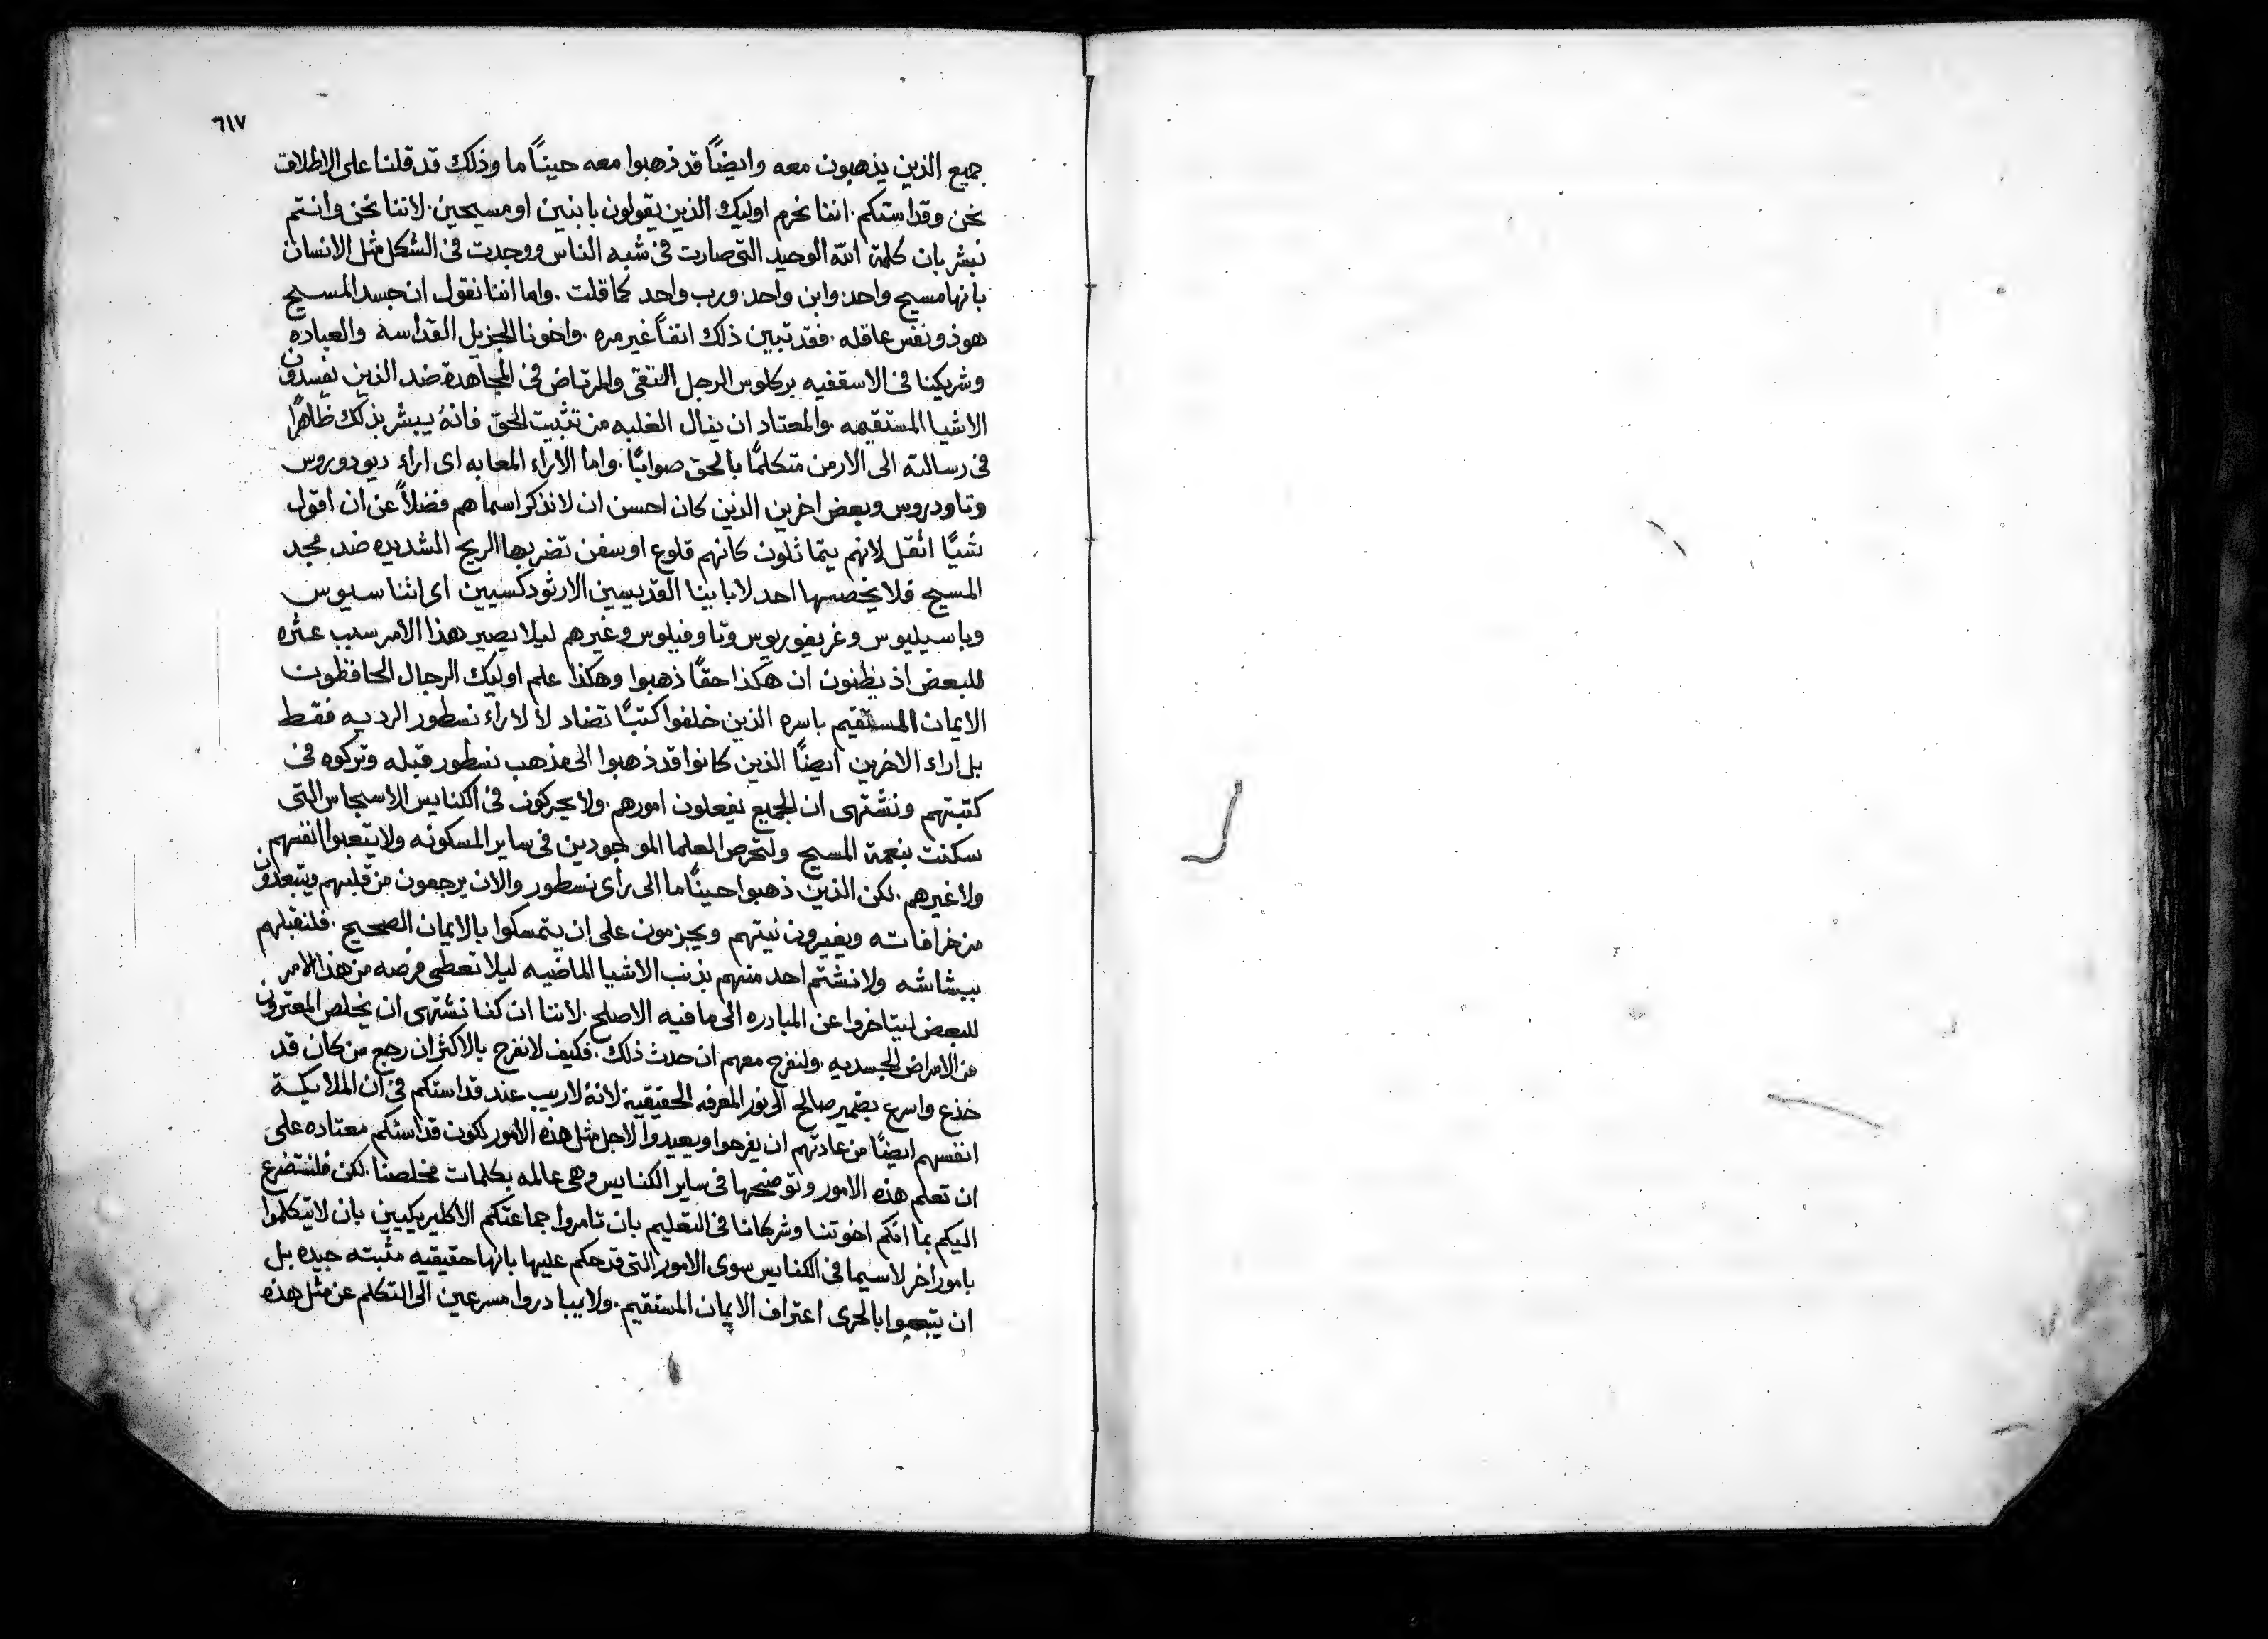 ٦١٧
جميع الذين يذهبون معه وايضًا قد ذهبوا معه حينًا ما وذلك قد قلنا على الاطلاق
نحن وقداستكم. اننا نحرم اوليك الذين يقولون بابنين او مسيحين. لاننا نحن وانتم
نبشر بان كلمة الله الوحيد التى صارت فى شبه الناس ووجدت فى الشكل مثل الانسان
بانها مسيح واحد وابن واحد ورب واحد كما قلت. واما اننا نقول ان جسد المسيح
هو ذو نفس عاقله. فقد تبين ذلك انفًا غير مره. واخونا الجزيل القداسه والعباده
وشريكنا فى الاسقفيه بركلوس الرجل التقى والمرتاض فى المجاهدة ضد الذين يفسدون
الاشيا المستقيمه. والمعتاد ان ينال الغلبه من تثبيت الحق فانهُ يبشر بذلك ظاهرًا
فى رسالته الى الارمن متكلمًا بالحق صوابًا. واما الاراء المعابه اى اراء ديودوروس
وتاودروس وبعض اخرين الذين كان احسن ان لا نذكر اسماهم فضلاً عن ان اقول
شيًا اثقل لانهم يتماثلون كانهم قلوع او سفن تضربها الريح الشديده ضد مجد
المسيح فلا يخصها احد لابابينا القديسين الارثودكسيين اى اثناسيوس
وباسيليوس وغريغوريوس وتاوفيلوس وغيرهم ليلا يصير هذا الامر سبب عثره
للبعض اذ يظنون ان هكذا حقًا ذهبوا وهكذا علم اوليك الرجال الحافظون
الايمان المستقيم باسره الذين خلفوا كتبًا تضاد لا لاراء نسطور الرديه فقط
بل اراء الاخرين ايضًا الذين كانوا قد ذهبوا الى مذهب نسطور قبله وتركوه فى
كتبتهم ونشتهى ان الجميع يفعلون امورهم. ولا يحركون فى الكنايس الاسجاس التى
سكنت بنعمة المسيح ولتحرص العلما الموجودين فى ساير المسكونه ولا يتعبوا انفسهم
ولا غيرهم. لكن الذين ذهبوا حينًا ما الى راى نسطور والان يرجعون من قلبهم ويتبعدون
من خرافاته ويغيرون نيتهم ويجزمون على ان يتمسكوا بالايمان الصحيح. فلنقبلهم
ببشاشه ولا نشتم احد منهم بذنب الاشيا الماضيه ليلا تعطى فرصه من هذا الامر
للبعض ليتاخروا عن المبادره الى ما فيه الاصلح. لاننا ان كنا نشتهى ان يخلص المعترون
من الامراض الجسديه. ولنفرح معهم ان حدث ذلك. فكيف لا نفرح بالاكثر ان رجع من كان قد
خدع واسرع بضمير صالح الى نور المعرفه الحقيقية لانهُ لا ريب عند قداستكم فى ان الملايكة
انفسهم ايضًا من عادتهم ان يفرحوا ويعيدوا لاجل مثل هذه الامور لكون قداستكم معتاده على
ان تعلم هذه الامور وتوضحها فى ساير الكنايس وهى عالمه بكلمات مخلصنا. لكن فلنتضرع
اليكم بما انكم اخوتنا وشركانا فى التعليم بان تامروا جماعتكم الاكليريكيين بان لا يتكلموا
بامور اخر لا سيما فى الكنايس سوى الامور التى قد حكم عليها بانها حقيقيه مثبته جيده بل
ان يتبعوا بالحرى اعتراف الايمان المستقيم. ولا يبادروا مسرعين الى التكلم عن مثل هذه